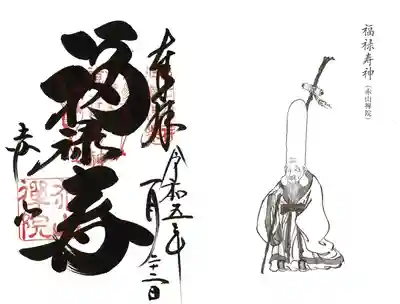 福禄寿神(赤山禅院)
奉拝
令和五年
一月二十二日
福禄寿
赤山
禅院